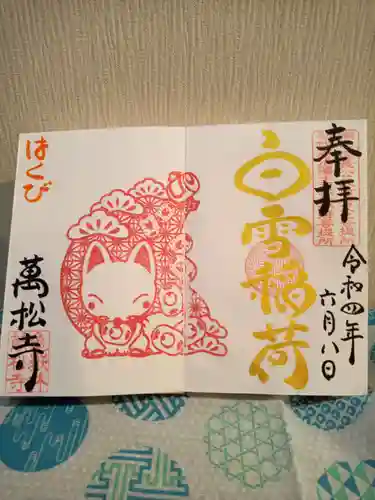 奉拝
令和四年
六月八日
白雪稲荷
はくび
萬松寺